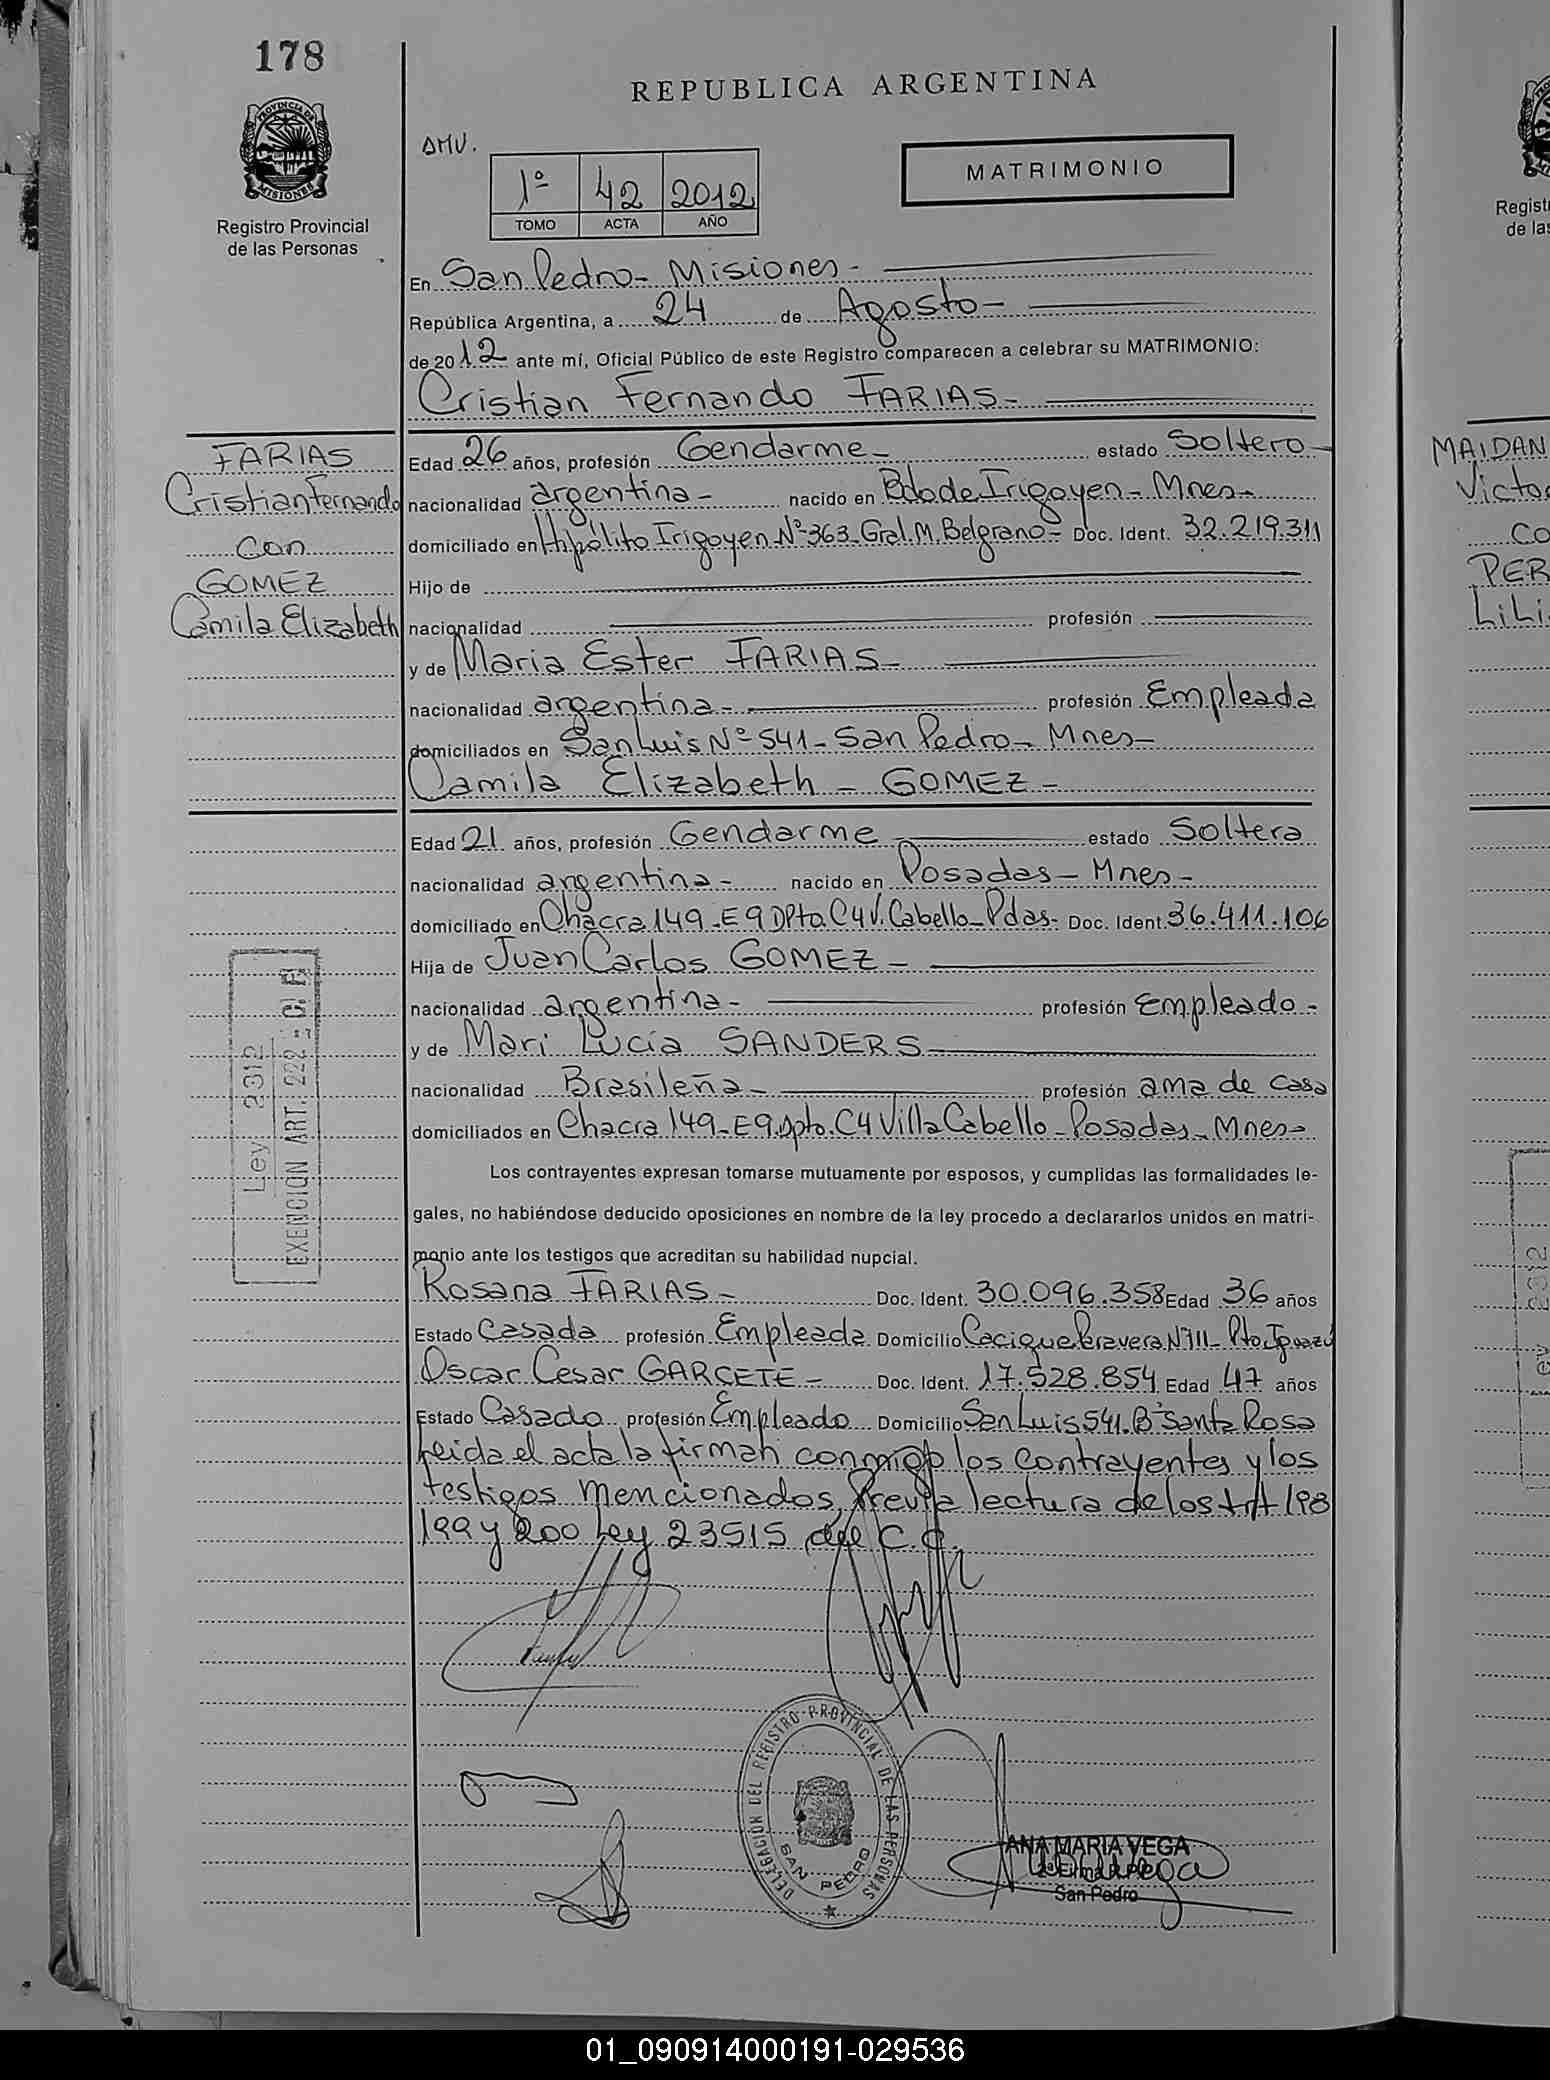 178
REPUBLICA ARGENTINA
PROVINCIA DE MISIONES
Registro Provincial
de las Personas
DMV.
1º 42 2012
TOMO ACTA AÑO
MATRIMONIO
En San Pedro- Misiones-
República Argentina, a 24 de Agosto-
de 2012 ante mí, Oficial Público de este Registro comparecen a celebrar su MATRIMONIO:
Cristian Fernando FARIAS-
FARIAS
Cristian Fernando
con
GOMEZ
Camila Elizabeth
Edad 26 años, profesión Gendarme- estado Soltero-
nacionalidad argentina- nacido en Bdo de Irigoyen- Mnes-
domiciliado en Hipólito Irigoyen Nº 363 Gral. M. Belgrano- Doc. Ident. 32.219.311
Hijo de
nacionalidad profesión
y de Maria Ester FARIAS-
nacionalidad argentina- profesión Empleada
domiciliados en San Luis Nº 541- San Pedro- Mnes-
Camila Elizabeth - GOMEZ-
Edad 21 años, profesión Gendarme estado Soltera
nacionalidad argentina- nacido en Posadas- Mnes-
domiciliado en Chacra 149-E9 DPto. C4 V. Cabello- Pdas- Doc. Ident. 36.411.106
Hija de Juan Carlos GOMEZ-
nacionalidad argentina- profesión Empleado-
y de Mari Lucía SANDERS
nacionalidad Brasileña- profesión ama de casa
domiciliados en Chacra 149-E9.Dpto. C4 Villa Cabello- Posadas- Mnes-
Los contrayentes expresan tomarse mutuamente por esposos, y cumplidas las formalidades le-
gales, no habiéndose deducido oposiciones en nombre de la ley procedo a declararlos unidos en matri-
monio ante los testigos que acreditan su habilidad nupcial.
Rosana FARIAS- Doc. Ident. 30.096.358 Edad 36 años
Estado Casada profesión Empleada Domicilio Cacique Nº711- Pto. Iguazú
Oscar Cesar GARCETE- Doc. Ident. 17.528.854 Edad 47 años
Estado Casado profesión Empleado Domicilio San Luis 541. Bº Santa Rosa
Leida el acta la firman conmigo los contrayentes y los
testigos mencionados, Previa lectura de los Art 198
199 y 200 Ley 23515 del C.C.
Ley 2312
EXENCION ART. 222 - C. F.
DELEGACION DEL REGISTRO PROVINCIAL DE LAS PERSONAS
SAN PEDRO
ANA MARIA VEGA
2ª Firma R.P.P.
San Pedro
Regist
de las
MAIDAN
Victo
co
PER
LiLi
01_090914000191-029536